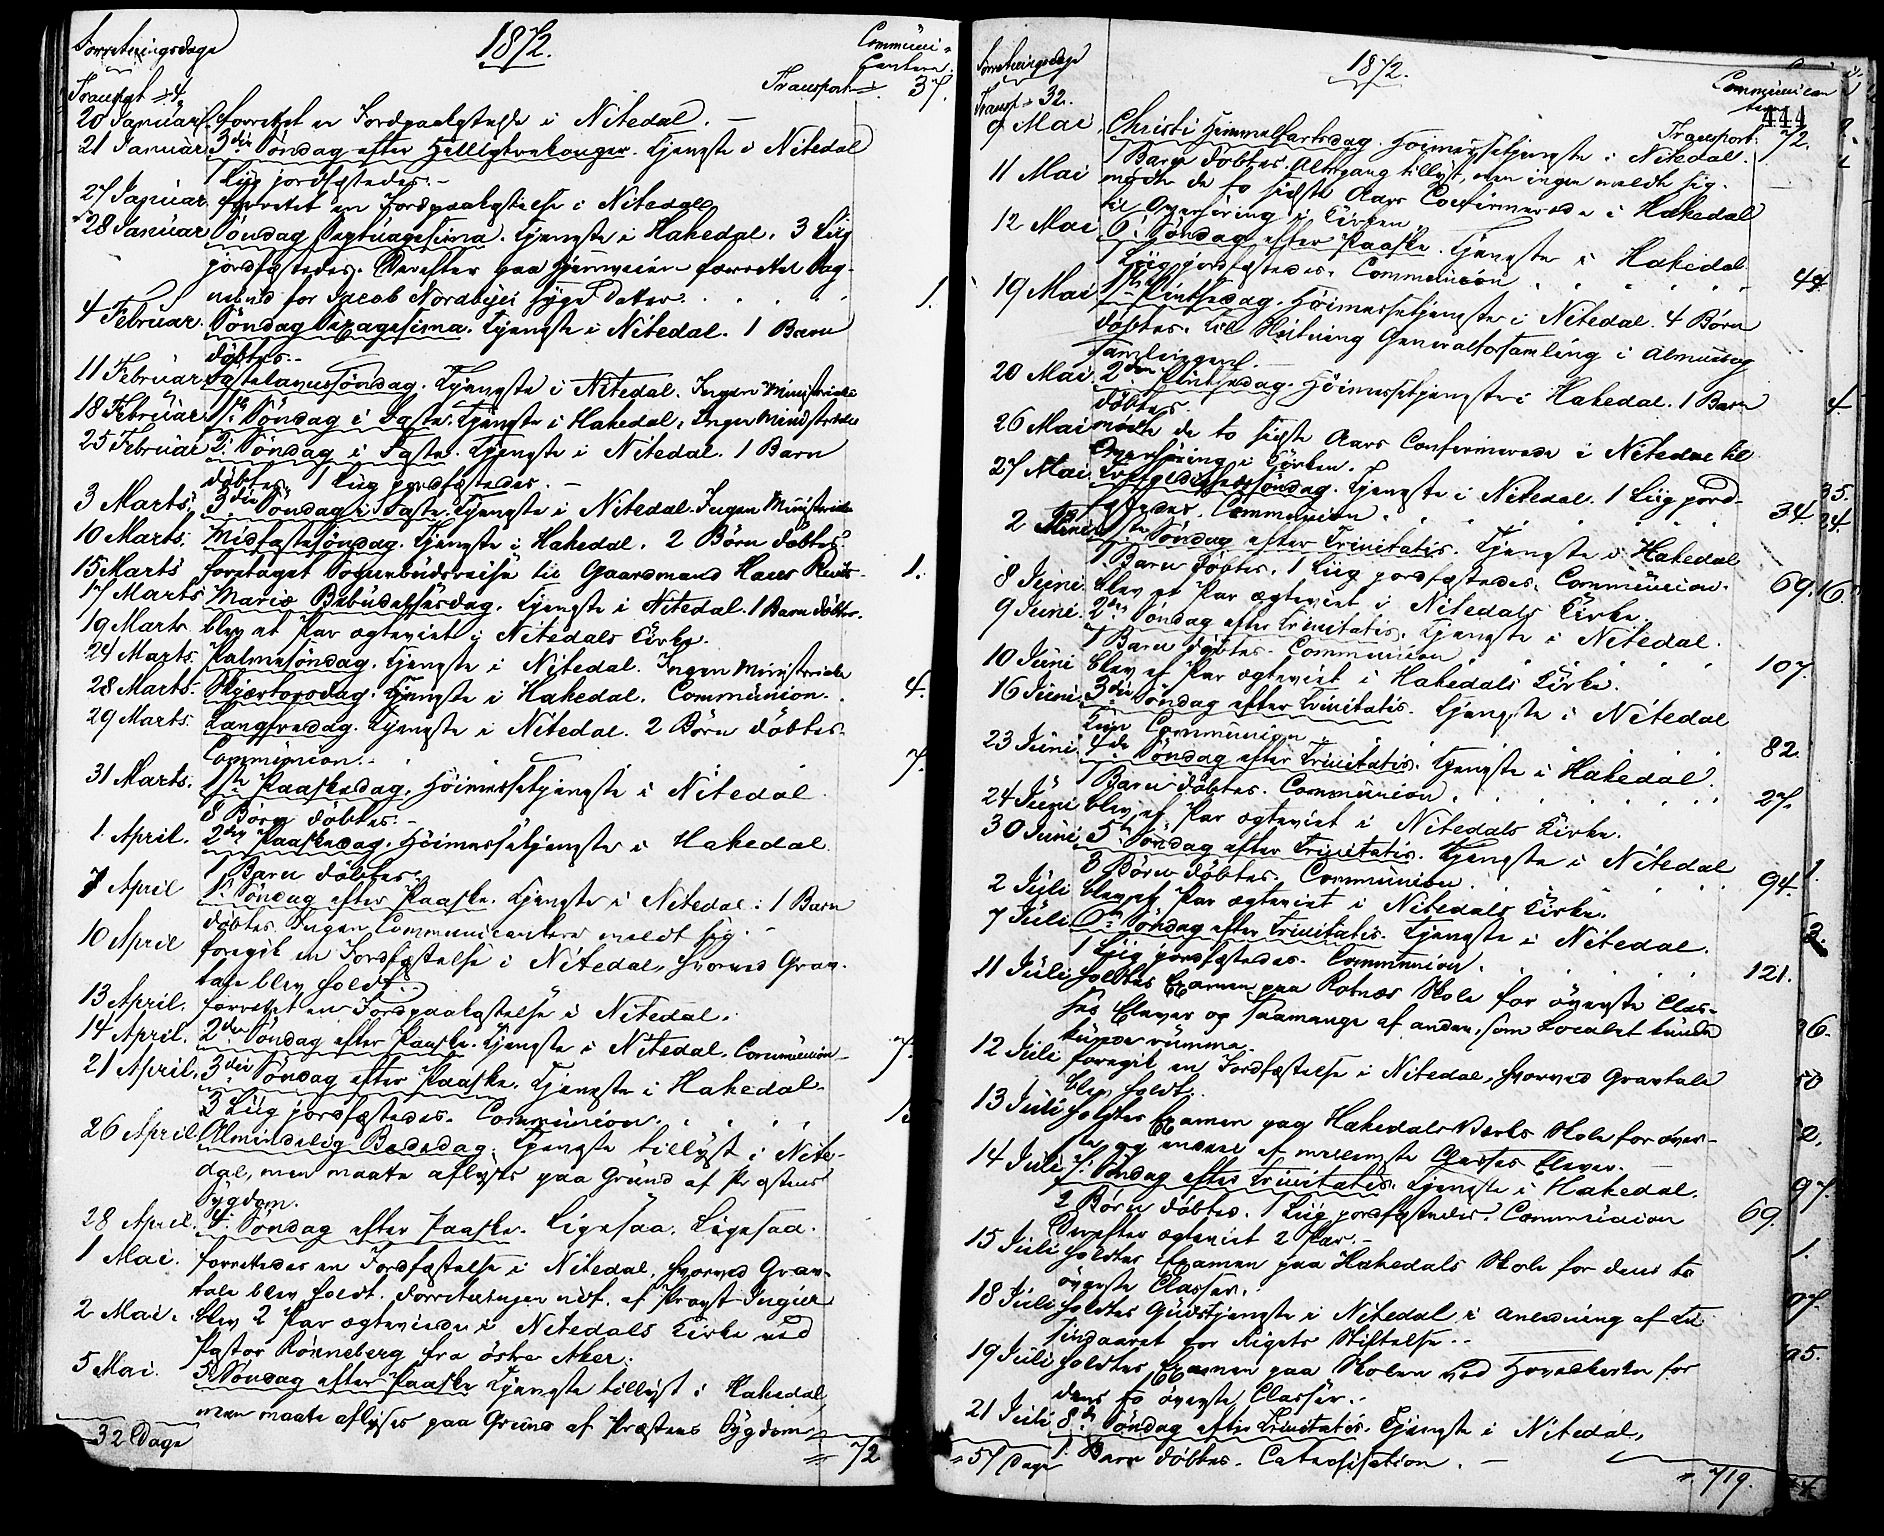 Forretningsdage
1872.
Communi-
cantern.
Transport 4.
Transport 37.
20 Januar forrettet en Jordpaakastelse i Nitedal. —
21 Januar 3die Søndag efter Helligtrekonger. Tjeneste i Nitedal
1 Liig jordfæstedes. —
27 Januar forrettet en Jordpaakastelse i Nitedal
28 Januar Søndag Septuagesima. Tjeneste i Hakedal. 3 Liig
jordfæstedes. Derefter paa Hjemveien forrettet Sog-
nebud for Jacob Nordbyes syge Datter. 1.
4 Februar. Søndag Sexagesima. Tjeneste i Nitedal. 1 Barn
døbtes. —
11 Februar Fastelavnssøndag. Tjeneste i Nitedal. Ingen Ministerialia
18 Februar 1ste Søndag i Faste. Tjeneste i Hakedal. Ingen Ministerialia
25 Februar 2. Søndag i Faste. Tjeneste i Nitedal. 1 Barn
døbtes. 1 Liig jordfæstedes. —
3 Marts. 3die Søndag i Faste. Tjeneste i Nitedal. Ingen Ministerialia
10 Marts. Midfastesøndag. Tjeneste i Hakedal. 2 Børn døbtes.
15 Marts foretaget Sognebudsreise til Gaardmand Hans 1.
17 Marts Mariæ Bebudelsesdag. Tjeneste i Nitedal. 1 Barn døbtes.
19 Marts blev et Par ægteviet i Nitedals Kirke.
24 Marts. Palmesøndag. Tjeneste i Nitedal. Ingen Ministerialia
28 Marts. Skjærtorsdag. Tjeneste i Hakedal. Communion. 4.
29 Marts. Langfredag. Tjeneste i Nitedal. 2 Børn døbtes.
Communion. 7.
31 Marts. 1ste Paaskedag. Høimessetjeneste i Nitedal
8 Børn døbtes. —
1. April. 2den Paaskedag. Høimessetjeneste i Hakedal.
1 Barn døbtes.
7 April 1ste Søndag efter Paaske. Tjeneste i Nitedal. 1 Barn
døbtes. Ingen Communicantere meldt sig. —
10 April foregik en Jordfæstelse i Nitedal, hvorved Grav-
tale blev holdt.
13 April. forrettet en Jordpaakastelse i Nitedal.
14 April. 2den Søndag efter Paaske. Tjeneste i Nitedal. Communion — 7.
21 April. 3die Søndag efter Paaske. Tjeneste i Hakedal.
3 Liig jordfæstedes. Communion.
26 April. Almindelig Bededag. Tjeneste tillyst i Nite-
dal, men maatte aflyses paa Grund af Præstens
Sygdom.
28 April. 4. Søndag efter Paaske. Ligesaa. Ligesaa.
1 Mai. forrettedes en Jordfæstelse i Nitedal, hvorved Grav-
tale blev holdt. Forretningen udf. af Provst
2 Mai. blev 2 Par ægteviede i Nitedals Kirke ved
Pastor Rønneberg fra østre Aker.
5 Mai. 5. Søndag efter Paaske Tjeneste tillyst i Hakedal,
men maatte aflyses paa Grund af Præstens Sygdom
32 Dage
72
Forretningsdage
1872.
Communican
tern
444
Transp. 32.
Transport 72.
9 Mai Christi Himmelfartsdag. Høimessetjeneste i Nitedal.
1 Barn døbtes. Altergang tillyst, men ingen meldte sig.
11 Mai mødte de to sidste Aars Confirmerede i Hakedal
til Overhøring i Kirken.
12 Mai 6. Søndag efter Paaske. Tjeneste i Hakedal
1 Liig jordfæstedes. Communion 44.
19 Mai 1ste Pintsedag. Høimessetjeneste i Nitedal. 4 Børn
døbtes. Generalforsamling i Almuebog
samlingen. —
20 Mai. 2den Pintsedag. Høimessetjeneste i Hakedal. 1 Barn
døbtes.
26 Mai mødte de to sidste Aars Confirmerede i Nitedal til
Overhøring i Kirken.
27 Mai. Trefoldighedssøndag. Tjeneste i Nitedal. 1 Liig jord-
fæstedes. Communion 34.
2 Juni 1ste Søndag efter Trinitatis. Tjeneste i Hakedal
1 Barn døbtes. 1 Liig jordfæstedes. Communion. 69.
8 Juni. blev et Par ægteviet i Nitedals Kirke.
9 Juni. 2den Søndag efter Trinitatis. Tjeneste i Nitedal.
1 Barn døbtes. Communion 107.
10 Juni blev et Par ægteviet i Hakedals Kirke.
16 Juni. 3die Søndag efter Trinitatis. Tjeneste i Nitedal
Kun Communion 82.
23 Juni 4de Søndag efter Trinitatis. Tjeneste i Hakedal.
1 Barn døbtes. Communion 27.
24 Juni blev et Par ægteviet i Nitedals Kirke.
30 Juni 5te Søndag efter Trinitatis. Tjeneste i Nitedal
3 Børn døbtes. Communion 94.
2 Juli blev et Par ægteviet i Nitedals Kirke.
7 Juli 6te Søndag efter Trinitatis. Tjeneste i Nitedal.
1 Liig jordfæstedes. Communion 121.
11 Juli holdtes Examen paa Rotnæs Skole for øverste Clas-
ses Elever og saamange af anden, som Localet kunde
kunde rumme.
12 Juli foregik en Jordfæstelse i Nitedal, hvorved Gravtale
blev holdt.
13 Juli holdtes Examen paa Hakedals Værks Skole for øver-
ste og endeel af mellemste Classes Elever. —
14 Juli 7. Søndag efter Trinitatis. Tjeneste i Hakedal.
2 Børn døbtes. 1 Liig jordfæstedes. Communion 69.
Derefter ægteviet 2 Par. —
15 Juli holdtes Examen paa Hakedals Skole for dens to
øverste Classer.
18 Juli holdtes Gudstjeneste i Nitedal i Anledning af Tu
sindaaret for Rigets Stiftelse. —
19 Juli holdtes Examen paa Skolen ved Hovedkirken for
dens to øverste Classer. —
21 Juli 8de Søndag efter Trinitatis. Tjeneste i Nitedal,
1 Barn døbtes. Catechisation. —
57 Dage
719.